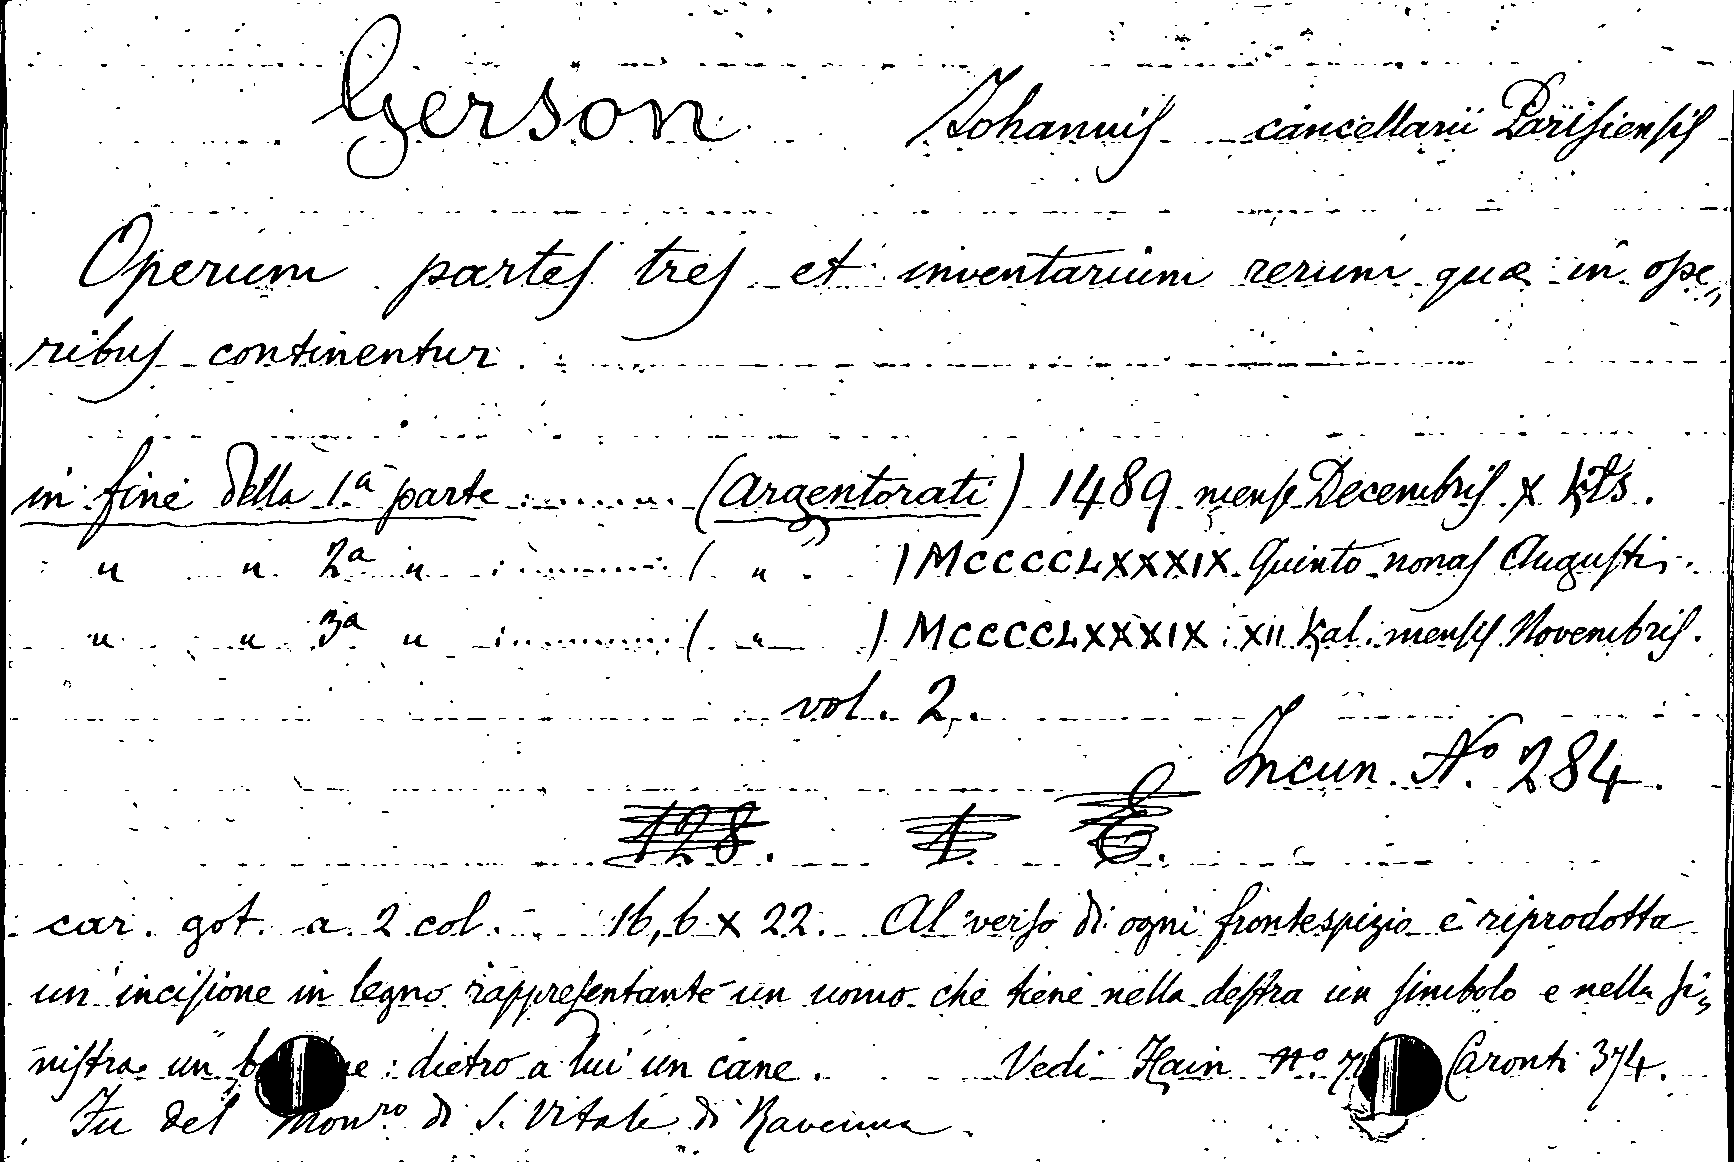 Gerson Johannis cancellarii Parisiensis
Operum partes tres et inventarium rerum quæ in ope„
ribus continentur.
in fine della 1.ª parte ......... (Argentorati) 1489 mense Decembris X kls.
" " 2ª " ......... ( " ) MCCCCLXXXIX Quinto nonas Augusti.
" " 3ª " ......... ( " ) MCCCCLXXXIX XII Kal. mensis Novembris.
vol. 2.
Incun. Nº 284.
128. 1. 6.
car. got. a 2 col. 16,6 x 22. Al verso di ogni frontespizio è riprodotta
un'incisione in legno rappresentante un uomo che tiene nella destra un simbolo e nella si„
nistra un : dietro a lui un cane. Vedi Hain Nº. Caronti 374.
Fu del Monro di S. Vitale di Ravenna.